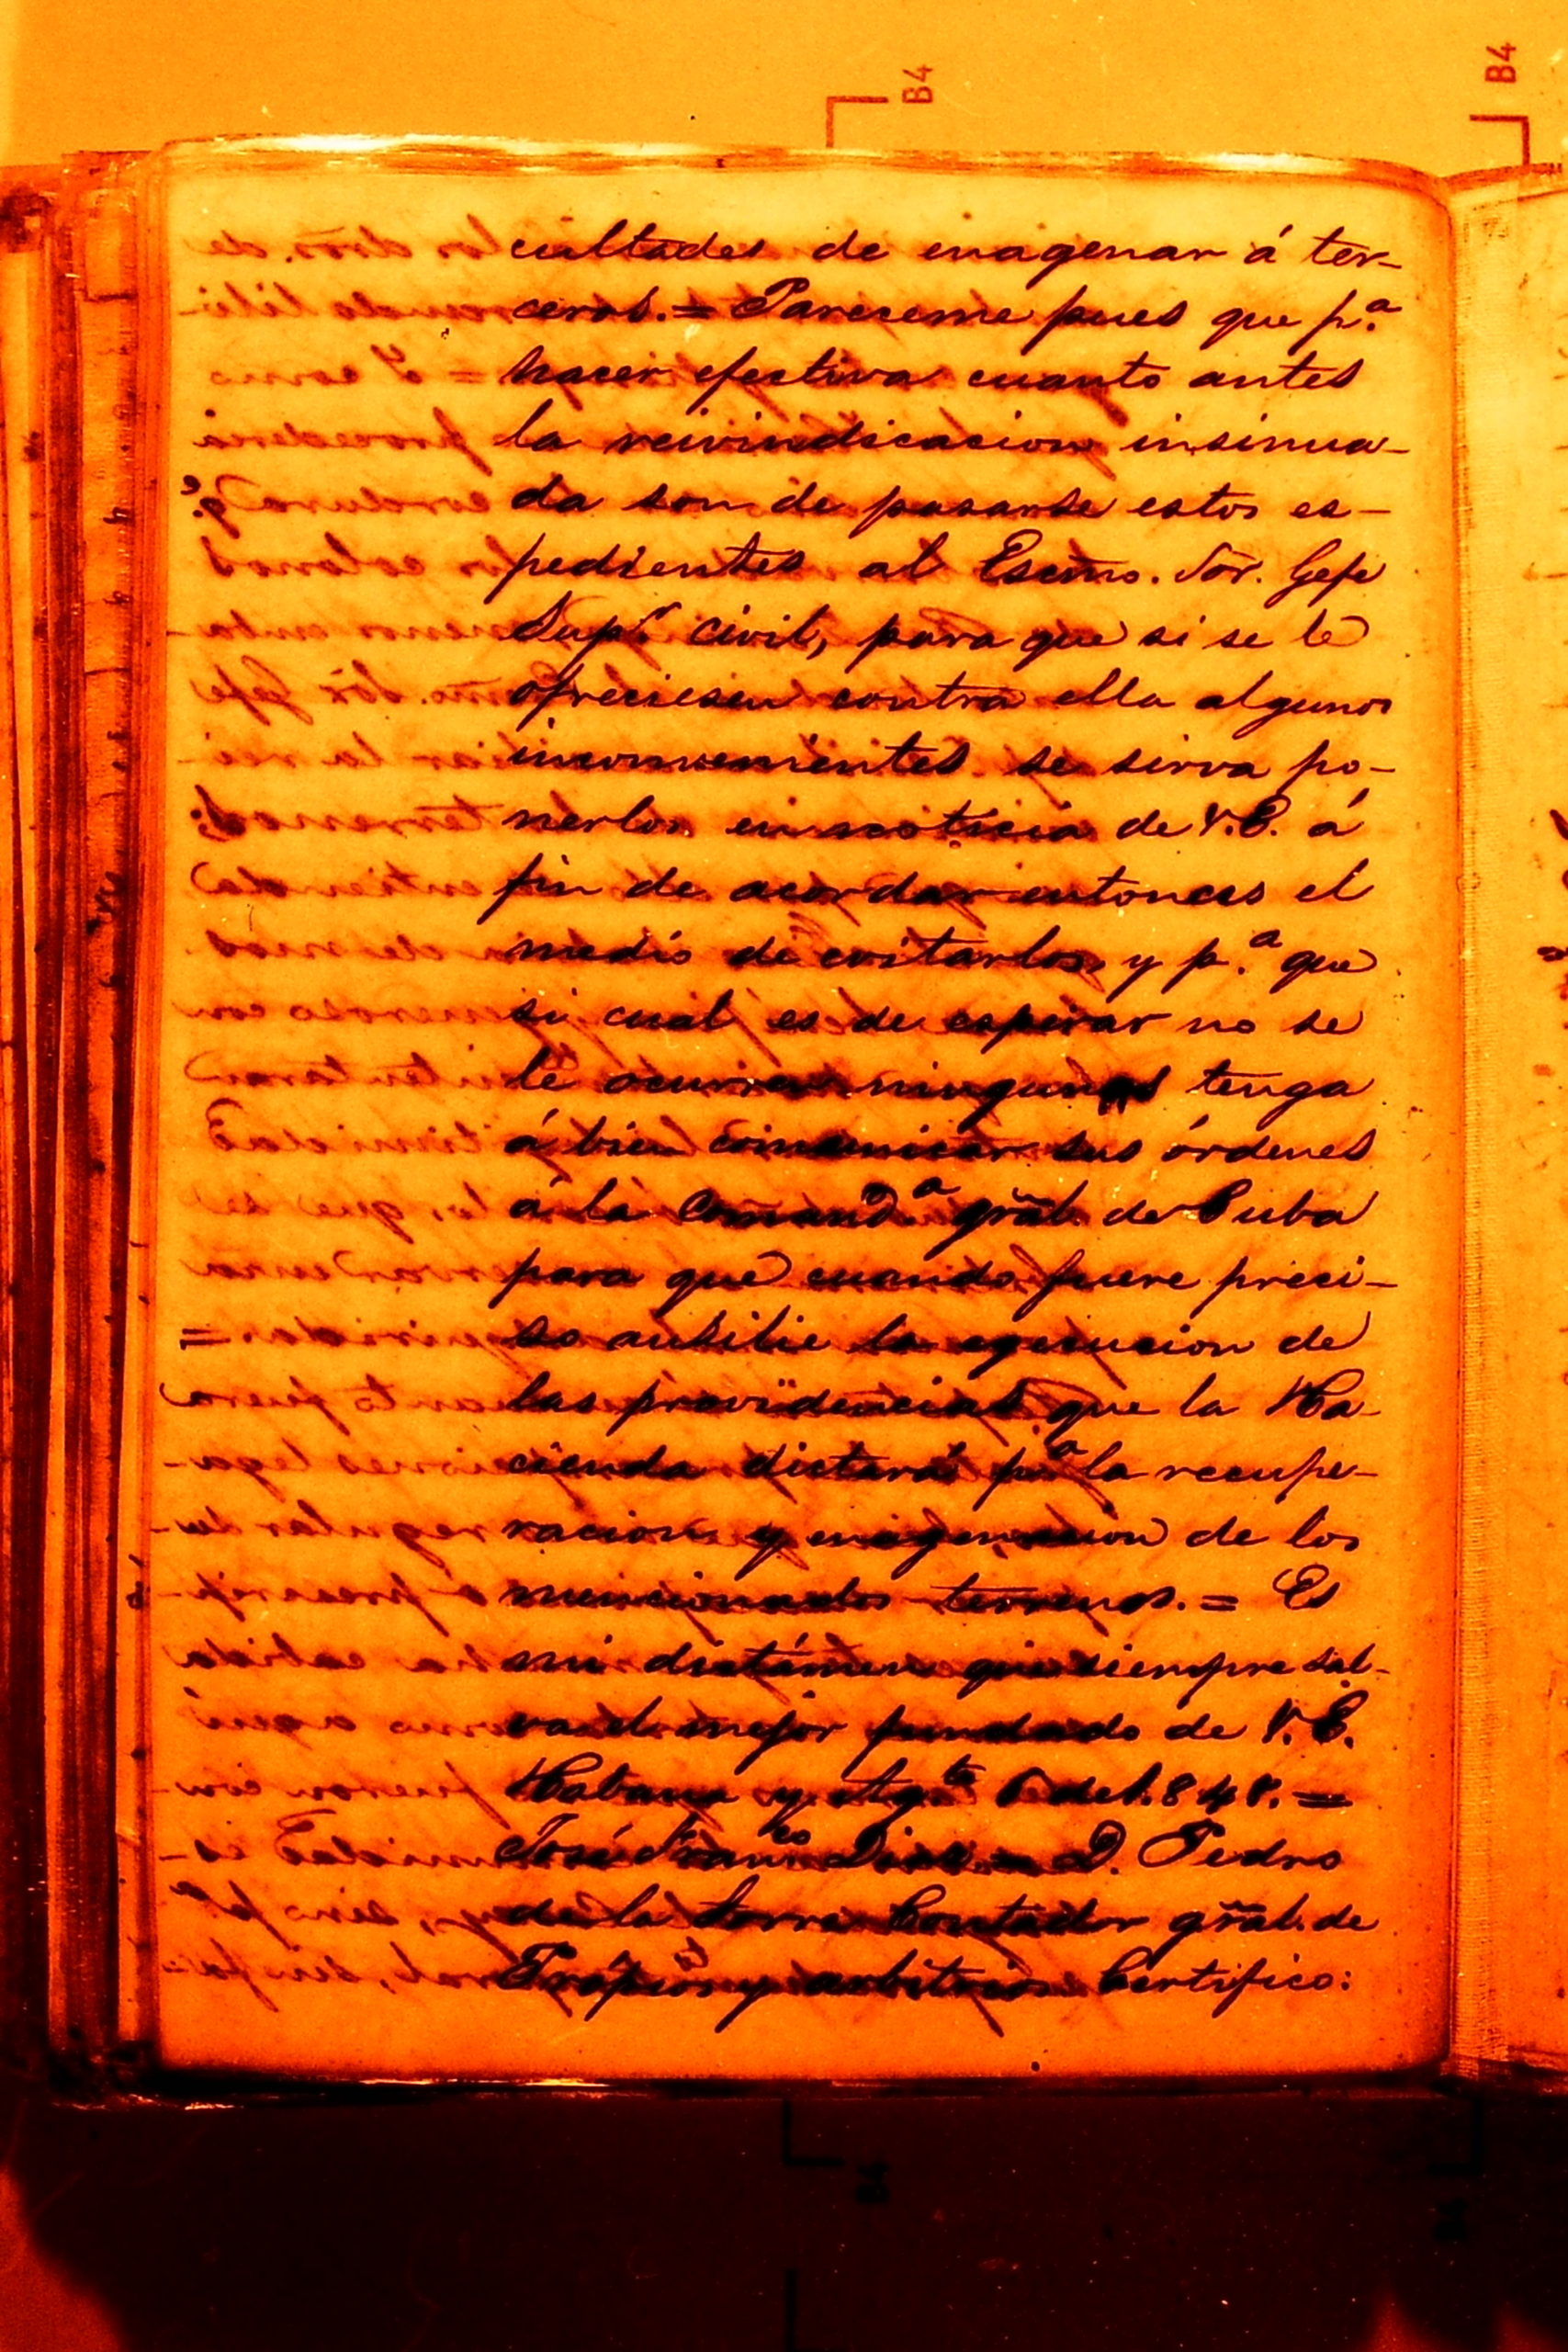 B4
B4
cultades de enagenar á ter-
ceros. = Pareceme pues que p.ª
hacer efectiva cuanto antes
la reivindicacion insinua-
da son de pasarse estos es-
pedientes al Escmo. Sor. Gefe
Sup.r civil, para que si se le
ofreciesen contra ella algunos
inconvenientes se sirva po-
nerlos en noticia de V.E. á
fin de acordar entonces el
medio de evitarlos, y p.ª que
si cual es de esperar no se
le ocurren ningunos tenga
á bien comunicar sus órdenes
á la Comand.ª gral. de Cuba
para que cuando fuere preci-
so ausilie la egecucion de
las providencias que la Ha-
cienda dictará p.ª la recupe-
racion y enagenacion de los
mencionados terrenos. = Es
mi dictámen que siempre sal-
va el mejor fundado de V.E.
Habana y Ag.to de 1.848. =
José Fran.co D. Pedro
de la Torre Contador gral. de
Própios y arbitrios Certifico:
B4